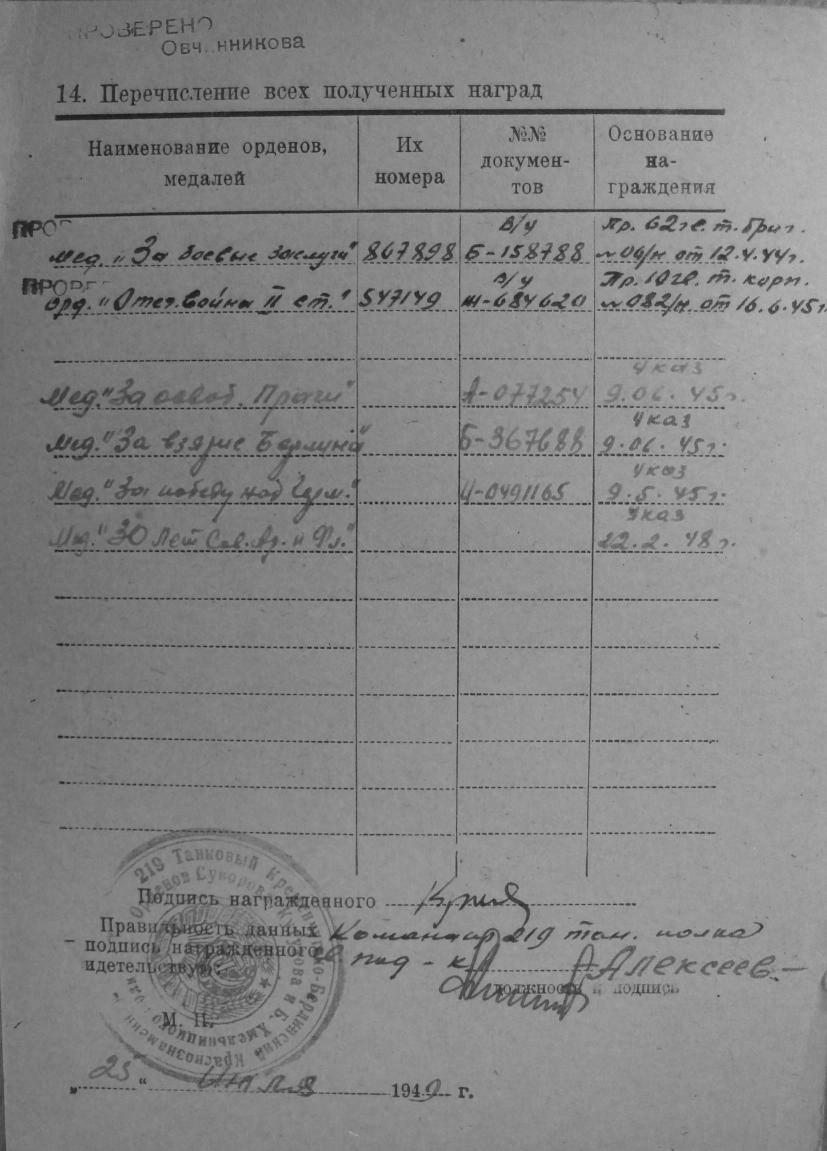 ПРОВЕРЕНО
Овч нникова
14. Перечисление всех полученных наград
Наименование орденов, медалей
Их номера
№№ докумен-тов
Основание на-граждения
ПРО
в/у Пр. 62 гв. т. бриг.
мед. „За боевые заслуги" 867898 Б-158788 № 06/н от 12.4.44г.
ПРОВЕ
в/у Пр. 10 гв. т. корп.
орд. „Отеч. война II ст." 547149 Ж-684620 № 082/н. от 16.6.45г
Указ
Мед. "За освоб. Праги" А-077254 9.06.45г.
Указ
Мед. "За взятие Берлина" Б-367688 9.06.45г.
Указ
Мед. "За победу над Герм." Ц-0491165 9.5.45г.
Указ
Мед. "30 лет Сов. Ар. и Фл." 22.2.48г.
Подпись награжденного
Правильность данных Командир 219 тан. полка
подпись награжденного
идетельствую: под-к Алексеев
должность и подпись
М. П.
„ 25 “ 1949 г.
219 Танковый Кременецко-Берлинский Краснознаменный
Орденов Суворова, Кутузова и Б. Хмельницкого полк